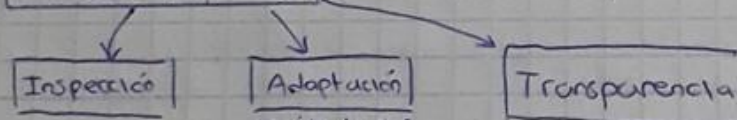 Inspección Adaptación Transparencia